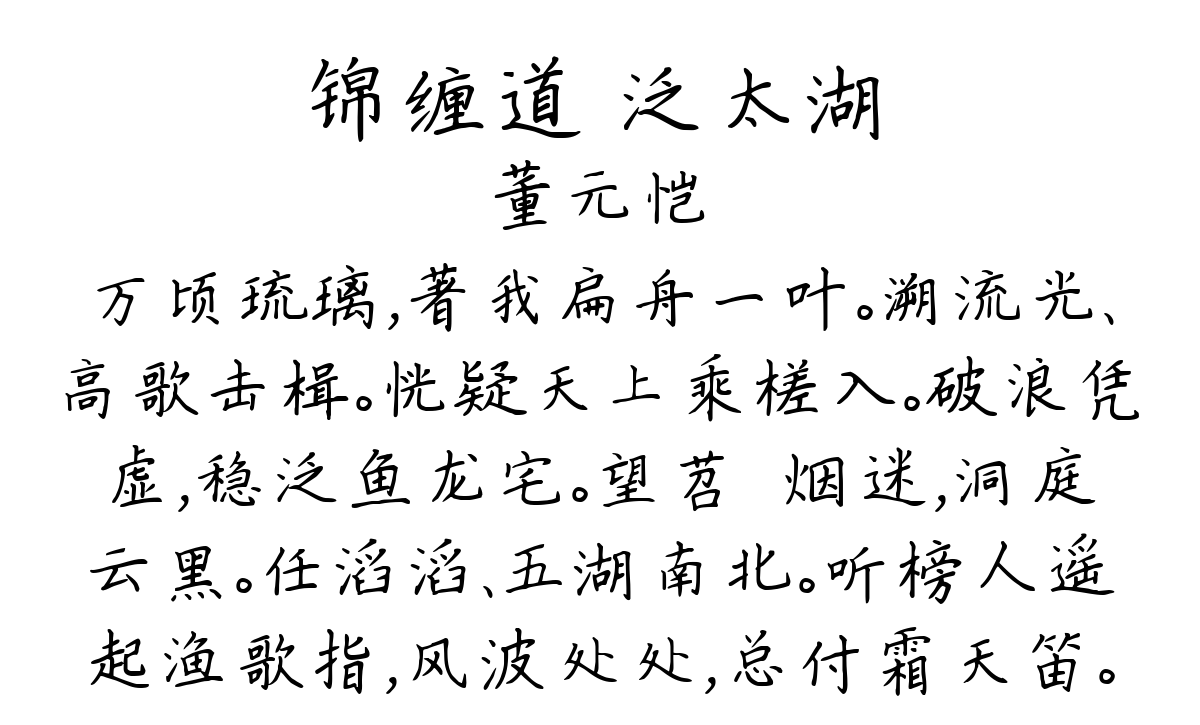 锦缠道 泛太湖
董元恺
万顷琉璃,著我扁舟一叶。溯流光、
高歌击楫。恍疑天上乘槎入。破浪凭
虚,稳泛鱼龙宅。望苕 烟迷,洞庭
云黑。任滔滔、五湖南北。听榜人遥
起渔歌指,风波处处,总付霜天笛。